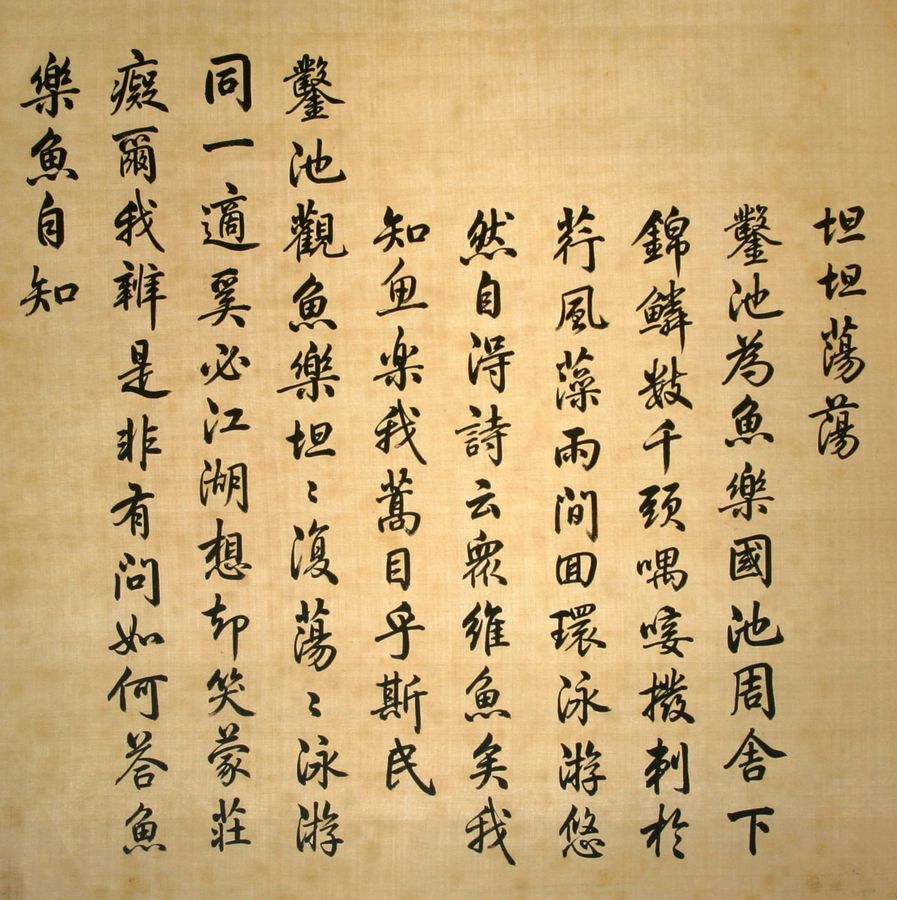 坦坦蕩蕩
鑿池為魚樂國池周舍下
錦鱗數千頭喁唼撥剌於
荇風藻雨間回環泳游悠
然自得詩云眾維魚矣我
知魚楽我蒿目乎斯民
鑿池觀魚樂坦〻復蕩〻泳游
同一適奚必江湖想却笑蒙莊
癡爾我辨是非有問如何答魚
樂魚自知